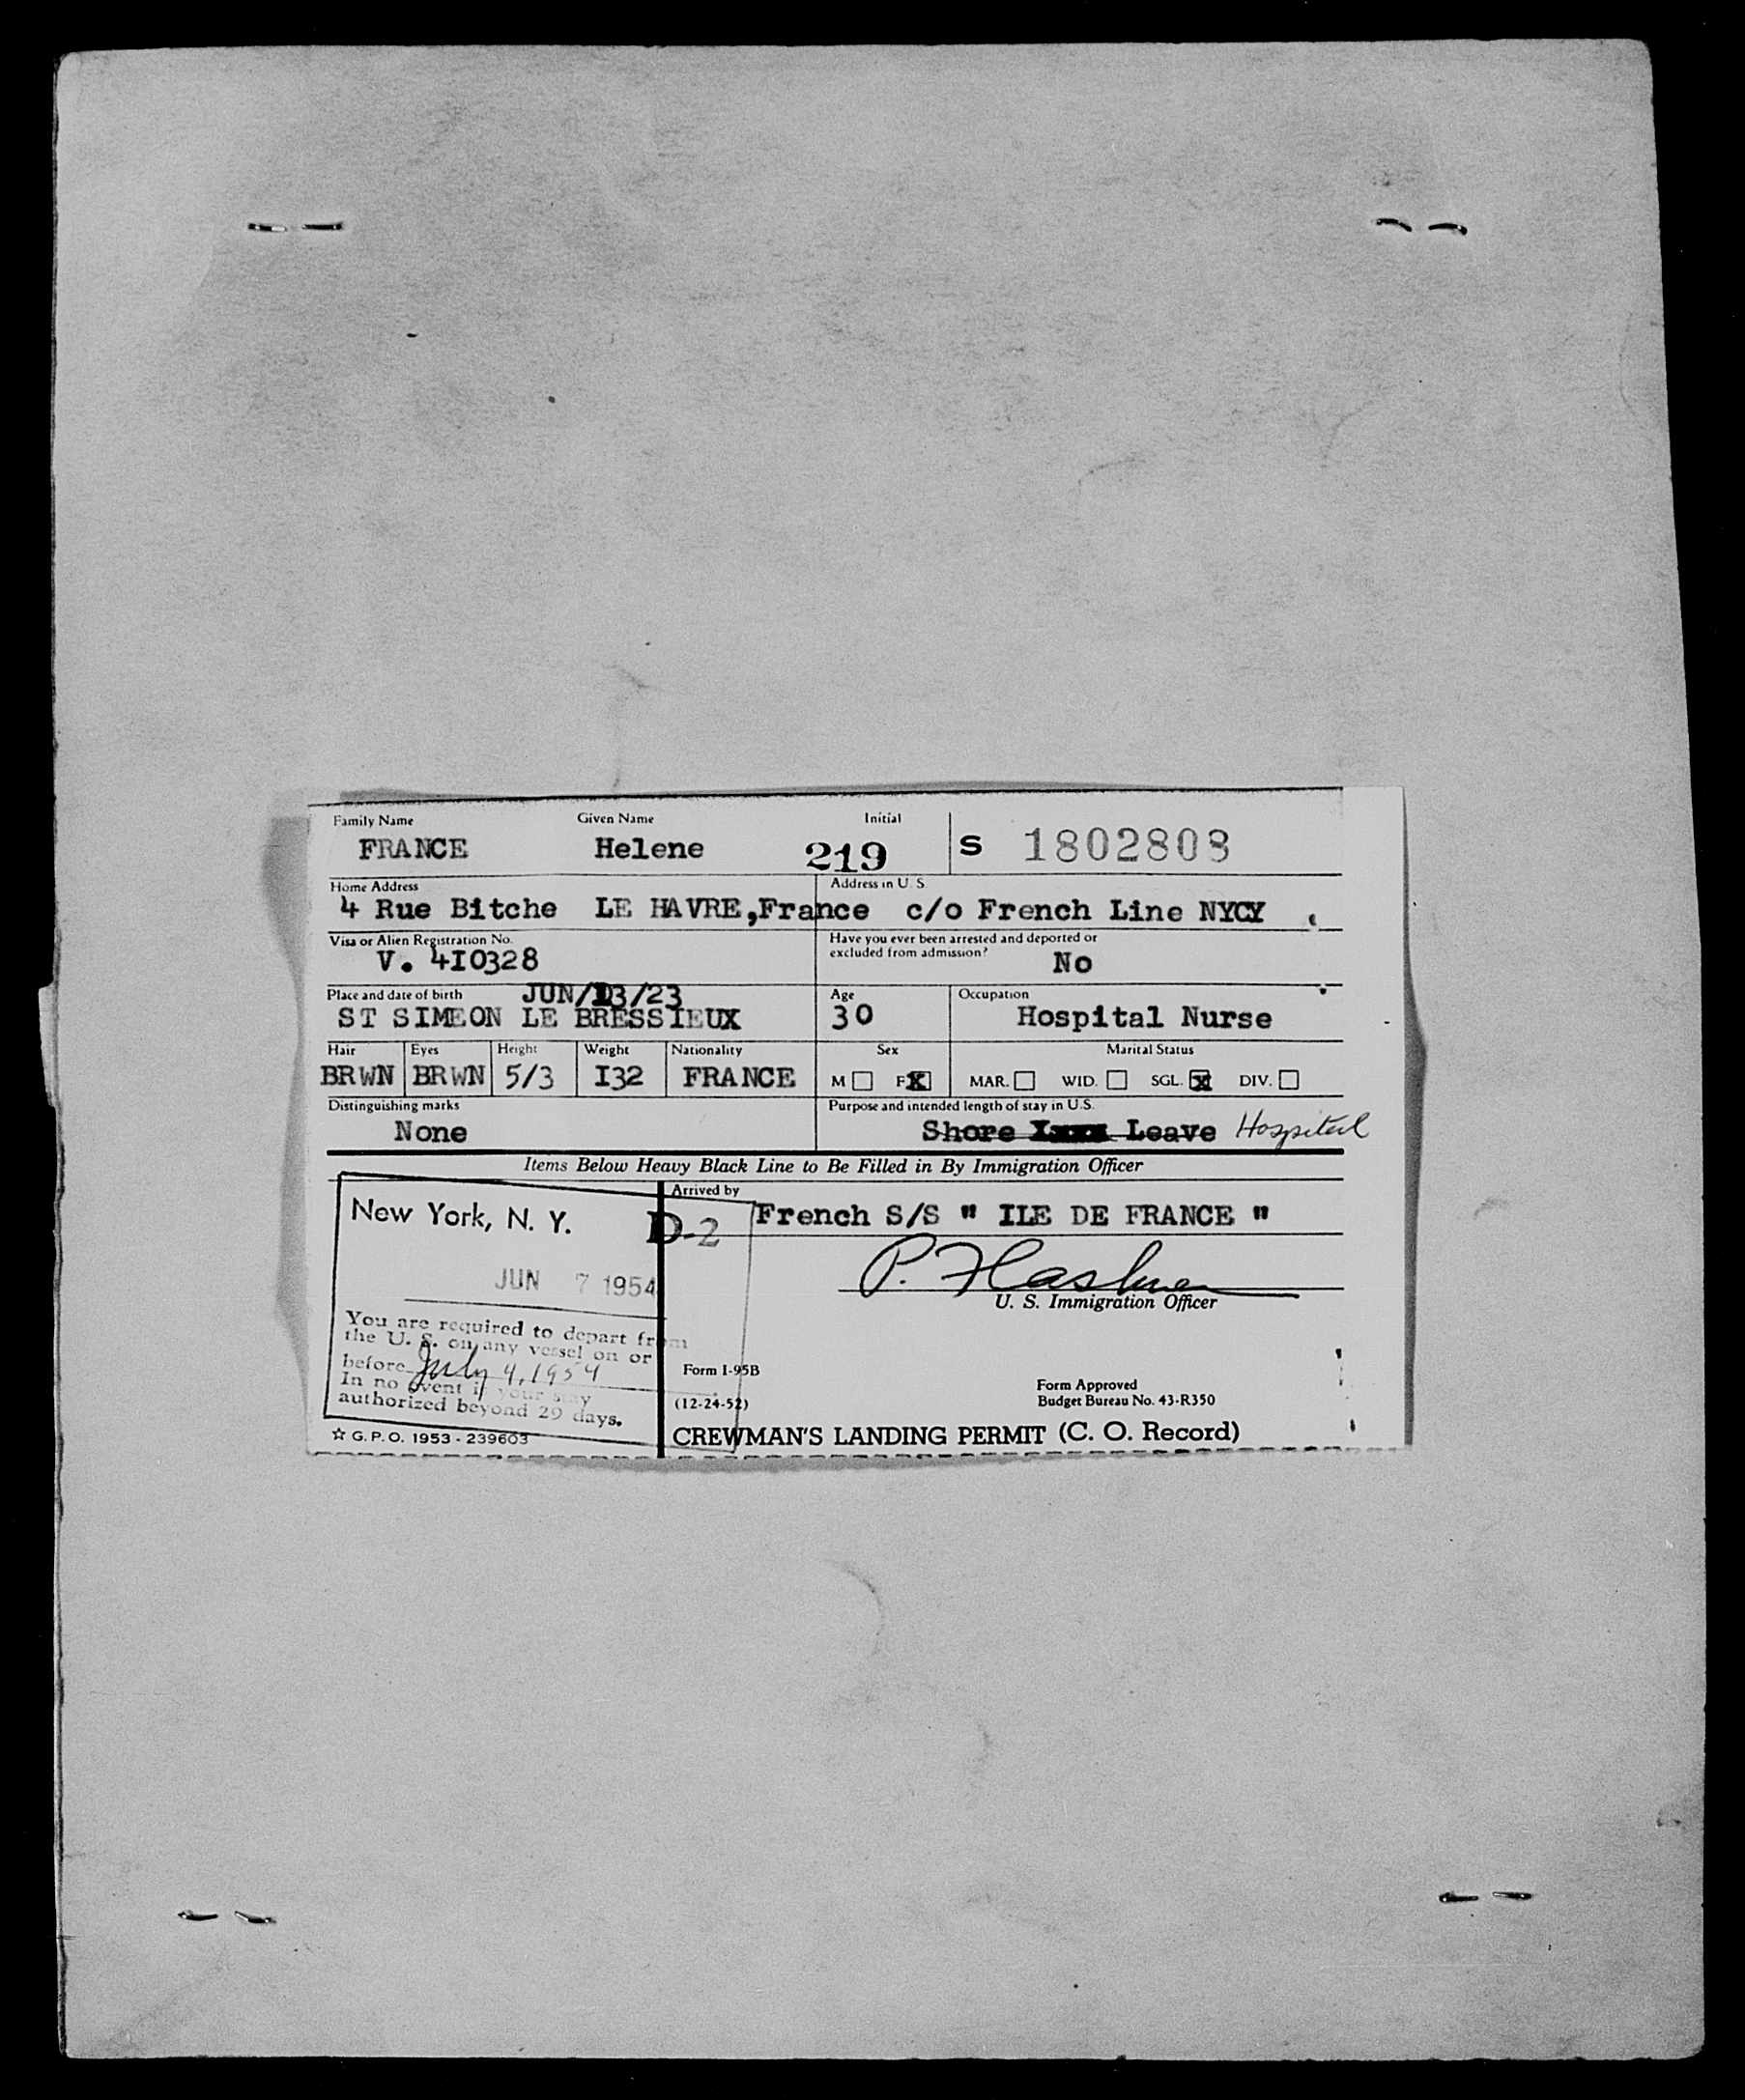 Family Name Given Name Initial
FRANCE Helene 219 S 1802808
Home Address Address in U. S.
4 Rue Bitche LE HAVRE,France c/o French Line NYCY
Visa or Alien Registration No. Have you ever been arrested and deported or
excluded from admission?
V. 4I0328 No
Place and date of birth JUN/13/23 Age Occupation
ST SIMEON LE BRESSIEUX 30 Hospital Nurse
Hair Eyes Height Weight Nationality Sex Marital Status
BRWN BRWN 5/3 I32 FRANCE M F X MAR. WID. SGL. X DIV.
Distinguishing marks Purpose and intended length of stay in U.S.
None Shore Leave Hospital
Items Below Heavy Black Line to Be Filled in By Immigration Officer
Arrived by
New York, N. Y. D-2 French S/S " ILE DE FRANCE "
JUN 7 1954
U. S. Immigration Officer
You are required to depart from
the U. S. on any vessel on or
before July 4, 1954
In no event is your stay
authorized beyond 29 days.
☆ G. P. O. 1953 - 239603
Form I-95B
(12-24-52)
Form Approved
Budget Bureau No. 43-R350
CREWMAN'S LANDING PERMIT (C. O. Record)